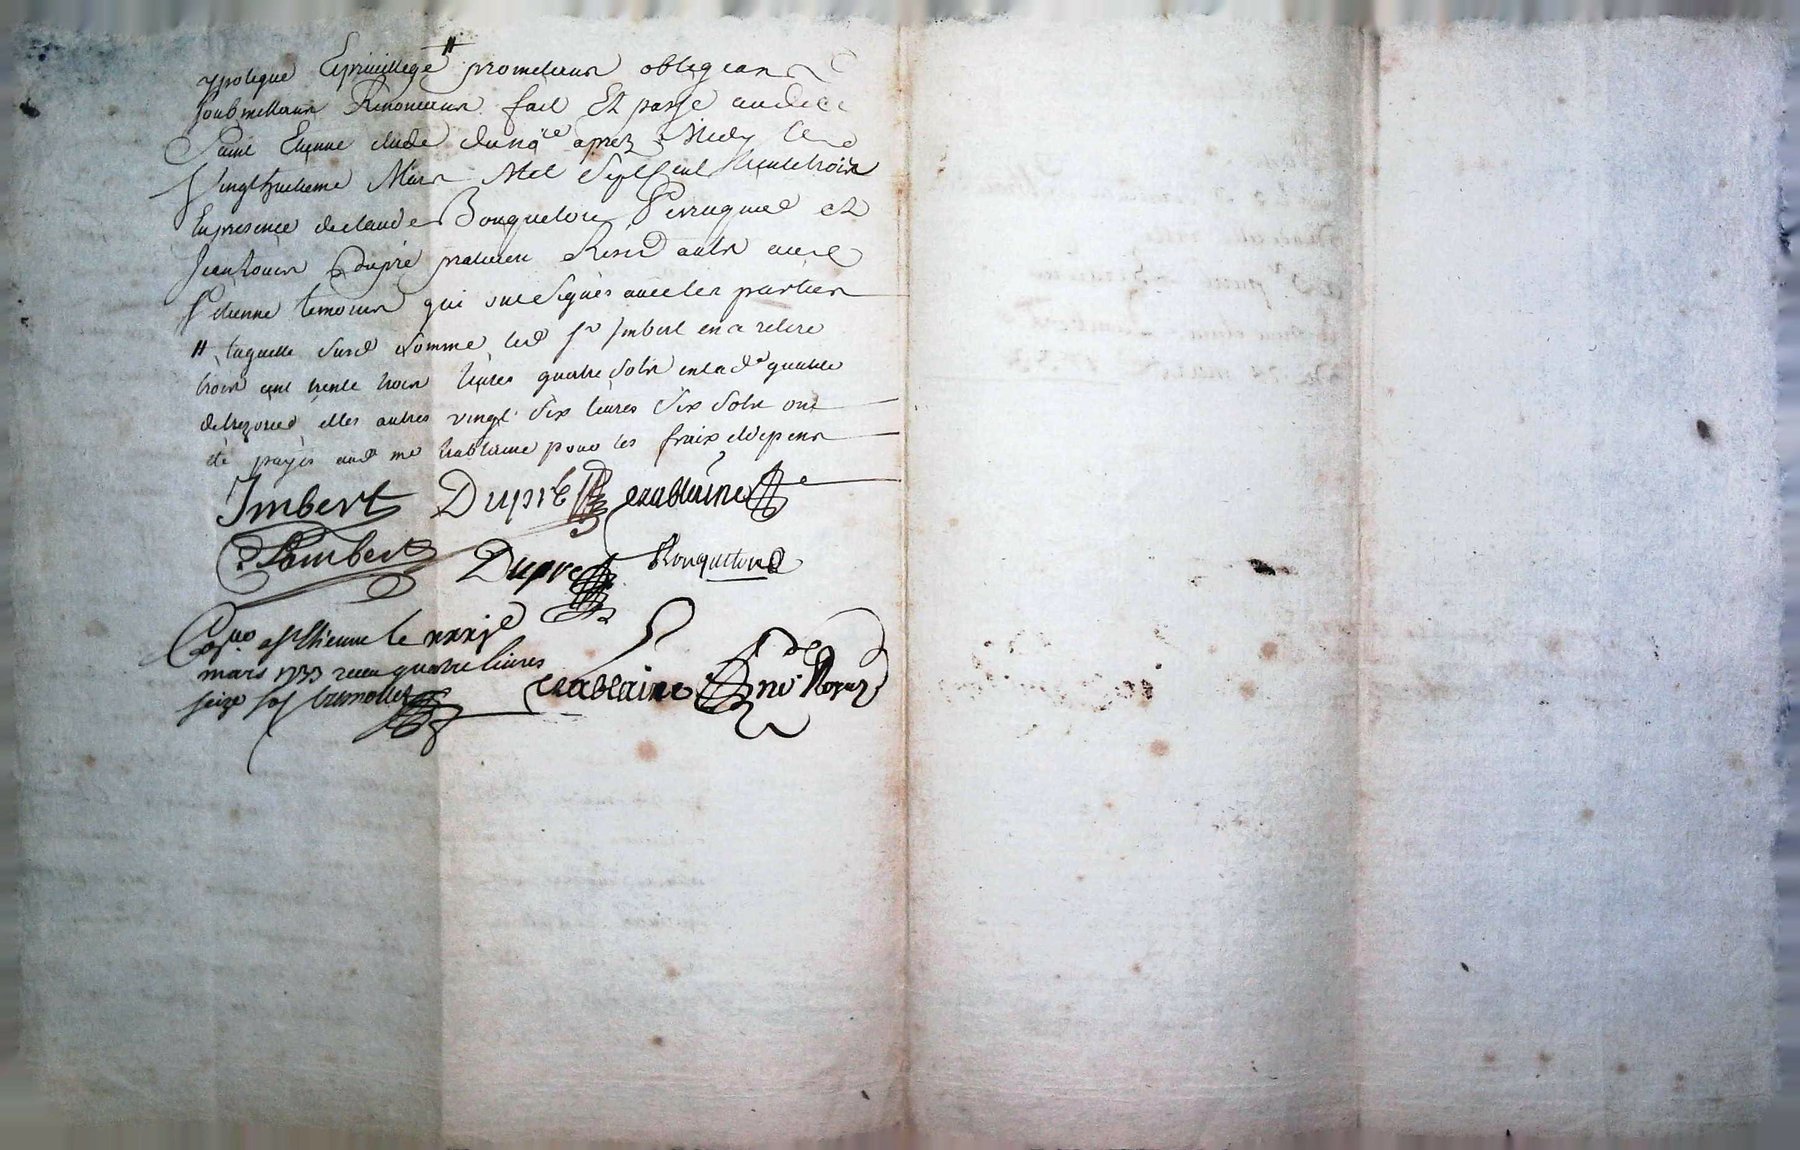 ypoteque Epriuillege # promettans obligeans
soubmettans Renonceans fait Et passé audit
Saint Etienne etude du nore apres Midy le
Vingthuitieme Mars Mil Sept Cent trente trois
En presence de claude Bouquelon Perruquier et
Jean Louis Dupré praticien Residants aud
St etienne temoins qui ont signés avec les parties
# laquelle susd somme led Sr Imbert en a retiré
trois cent trente trois liures quatre sols en lad qualité
de tresorier et les autres vingt six liures six sols ont
été payés aud me crablaine pour les fraix et depens
Imbert Dupré crablaine
Lambert Dupre Bouquelon
Conlé a St Etienne le xxxj
mars 1733 receu quatre liures
seize sols tremollet crablaine nre Royal